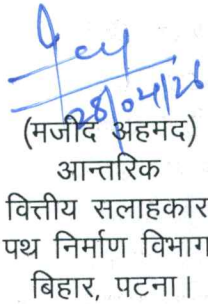 28/04/26
(मजीद अहमद)
आन्तरिक
वित्तीय सलाहकार
पथ निर्माण विभाग
बिहार, पटना।